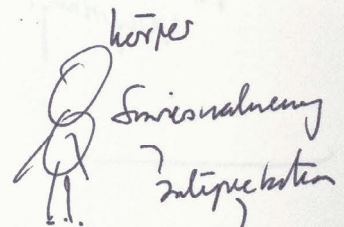 Körper
Sinneswahrnehmung
Interpretation